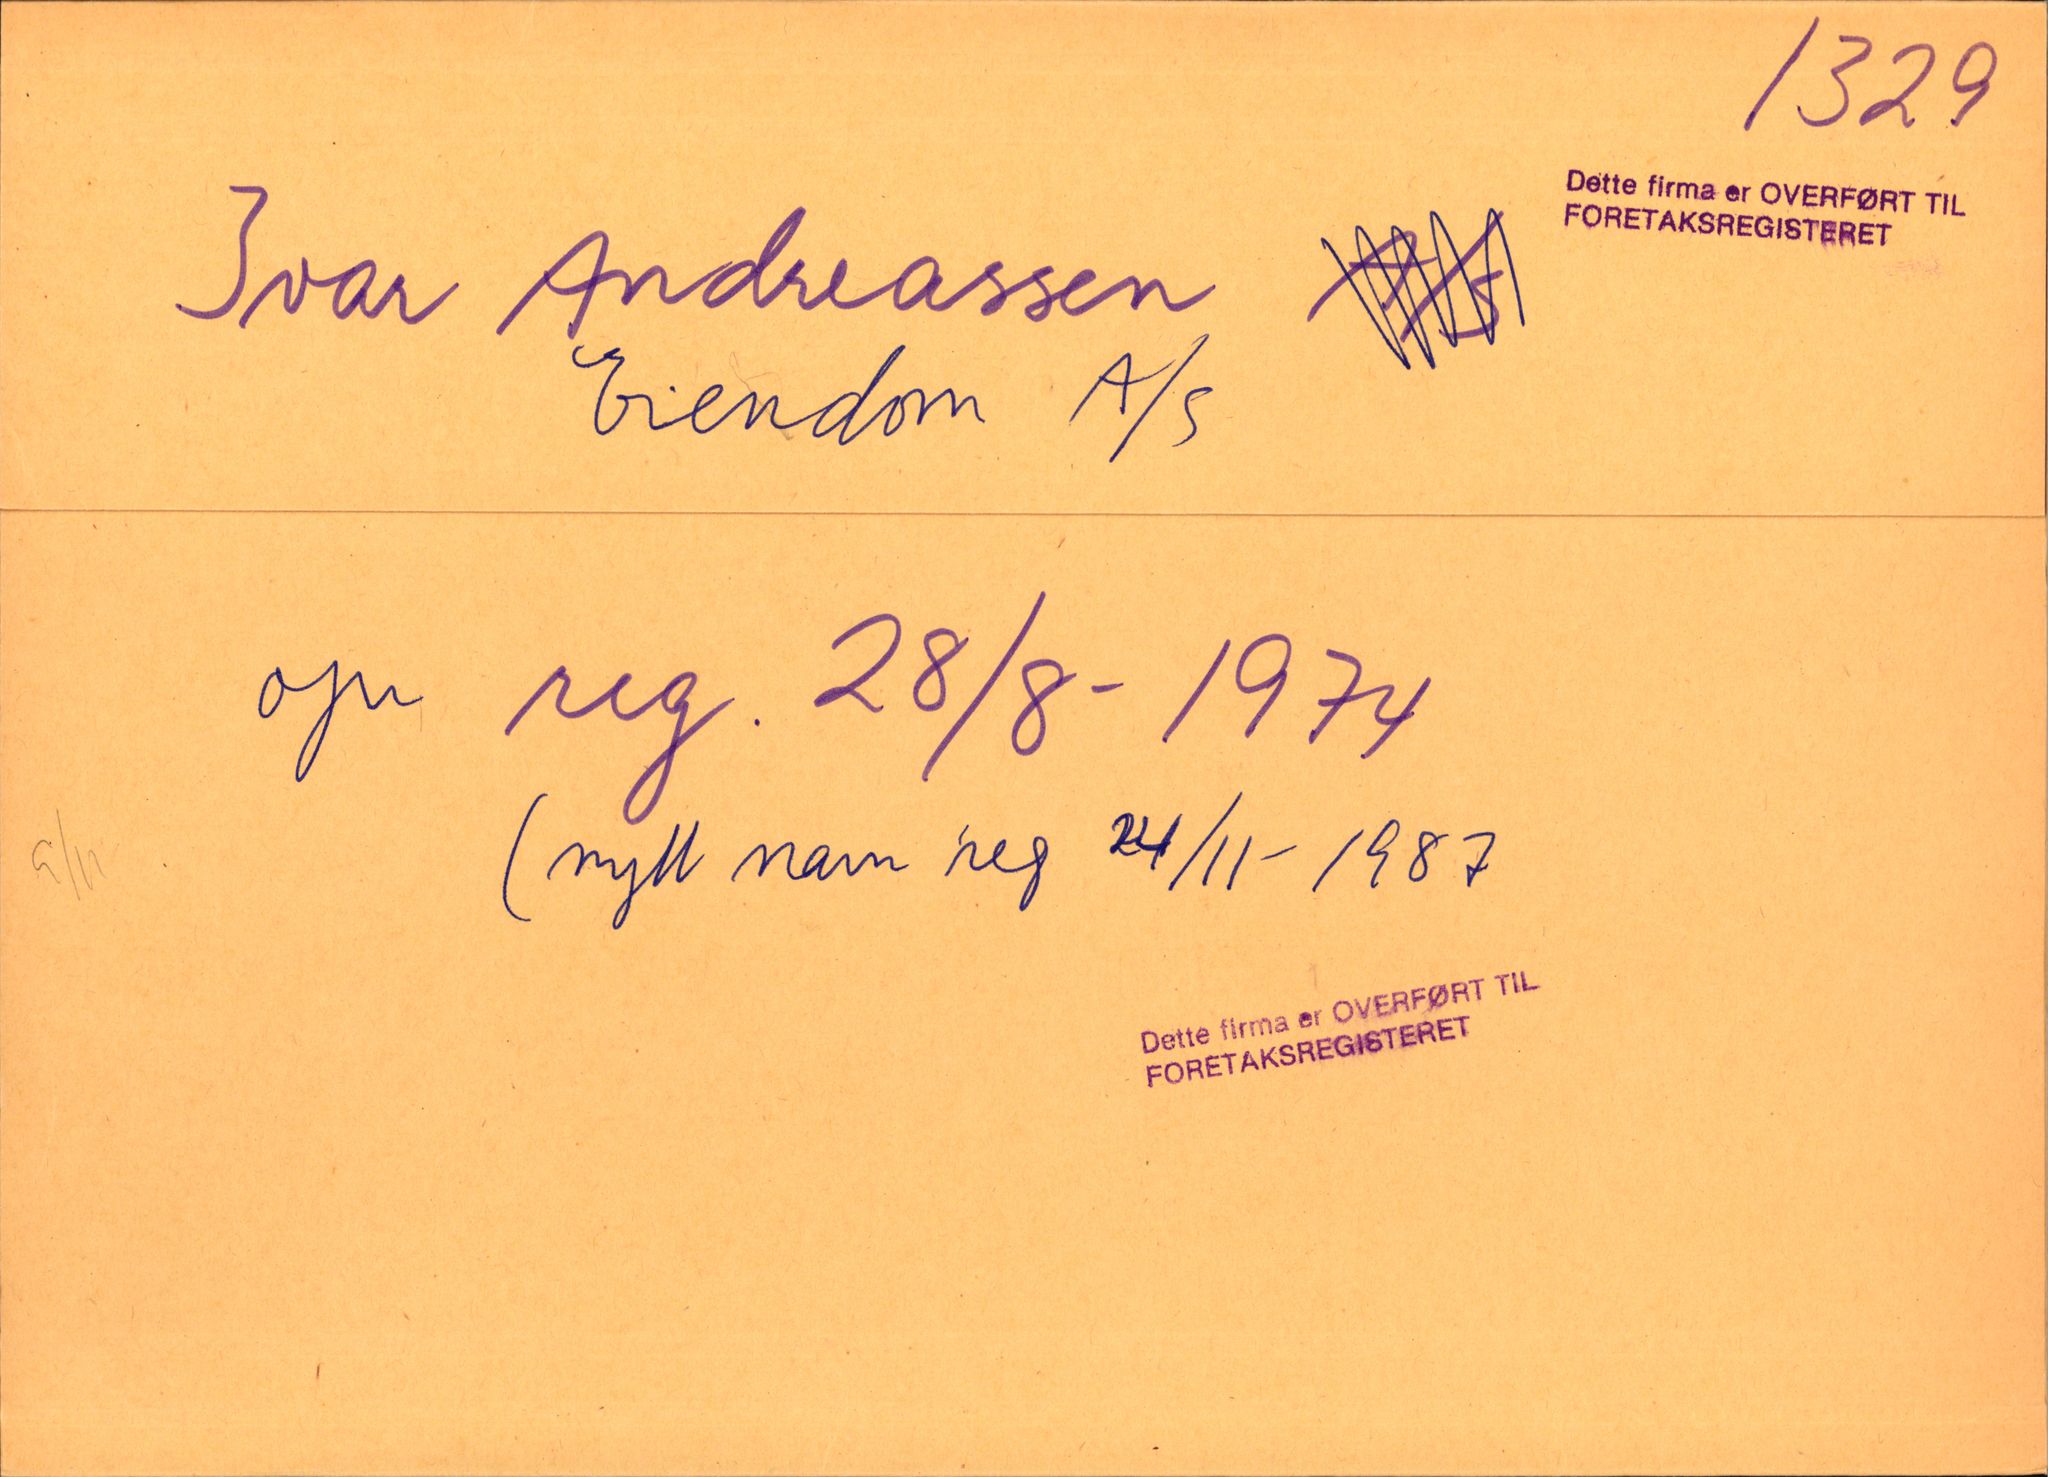 1329
Dette firma er OVERFØRT TIL
FORETAKSREGISTERET
Ivar Andreassen A/S
Eiendom A/S
opr reg. 28/8-1974
(nytt navn reg 24/11-1987
Dette firma er OVERFØRT TIL
FORETAKSREGISTERET